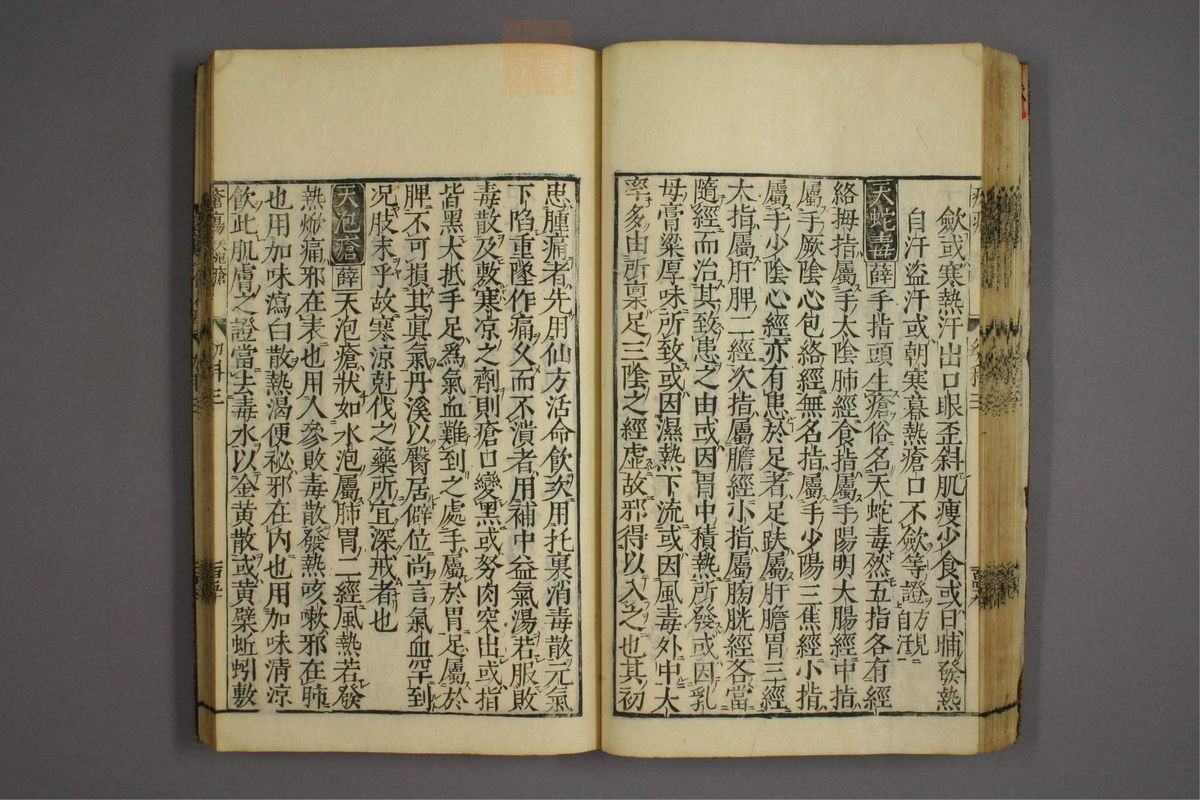 歛或寒熱汗出口眼歪斜肌痩少食或日晡發熱
自汗盜汗或朝寒暮熱瘡口不歛等證方見自汗
天蛇毒 薛 手指頭生瘡俗名天蛇毒然五指各有經
絡拇指屬手太陰肺經食指屬手陽明大腸經中指
屬手厥陰心包絡經無名指屬手少陽三焦經小指
屬手少陰心經亦有患於足者足趺屬肝膽胃三經
大指屬肝脾二經次指屬膽經小指屬膀胱經各當
隨經而治其致患之由或因胃中積熱所發或因乳
母膏粱厚味所致或因濕熱下流或因風毒外中大
率多由所稟足三陰之經虛故邪得以入之也其初
患腫痛者先用仙方活命飲次用托裏消毒散元氣
下陷重墜作痛久而不潰者用補中益氣湯若服敗
毒散及敷寒涼之劑則瘡口變黑或努肉突出或指
皆黑大抵手足爲氣血難到之處手屬於胃足屬於
脾不可損其眞氣丹溪以臀居僻位尚言氣血罕到
况肢末乎故寒涼尅伐之藥所宜深戒者也
天泡瘡 薛 天泡瘡狀如水泡屬肺胃二經風熱若發
熱焮痛邪在表也用人參敗毒散發熱咳嗽邪在肺
也用加味瀉白散熱渴便祕邪在內也用加味清涼
飲此肌膚之證當去毒水以金黄散或黄蘗蚯蚓敷
瘡瘍 天泡瘡 幼科三